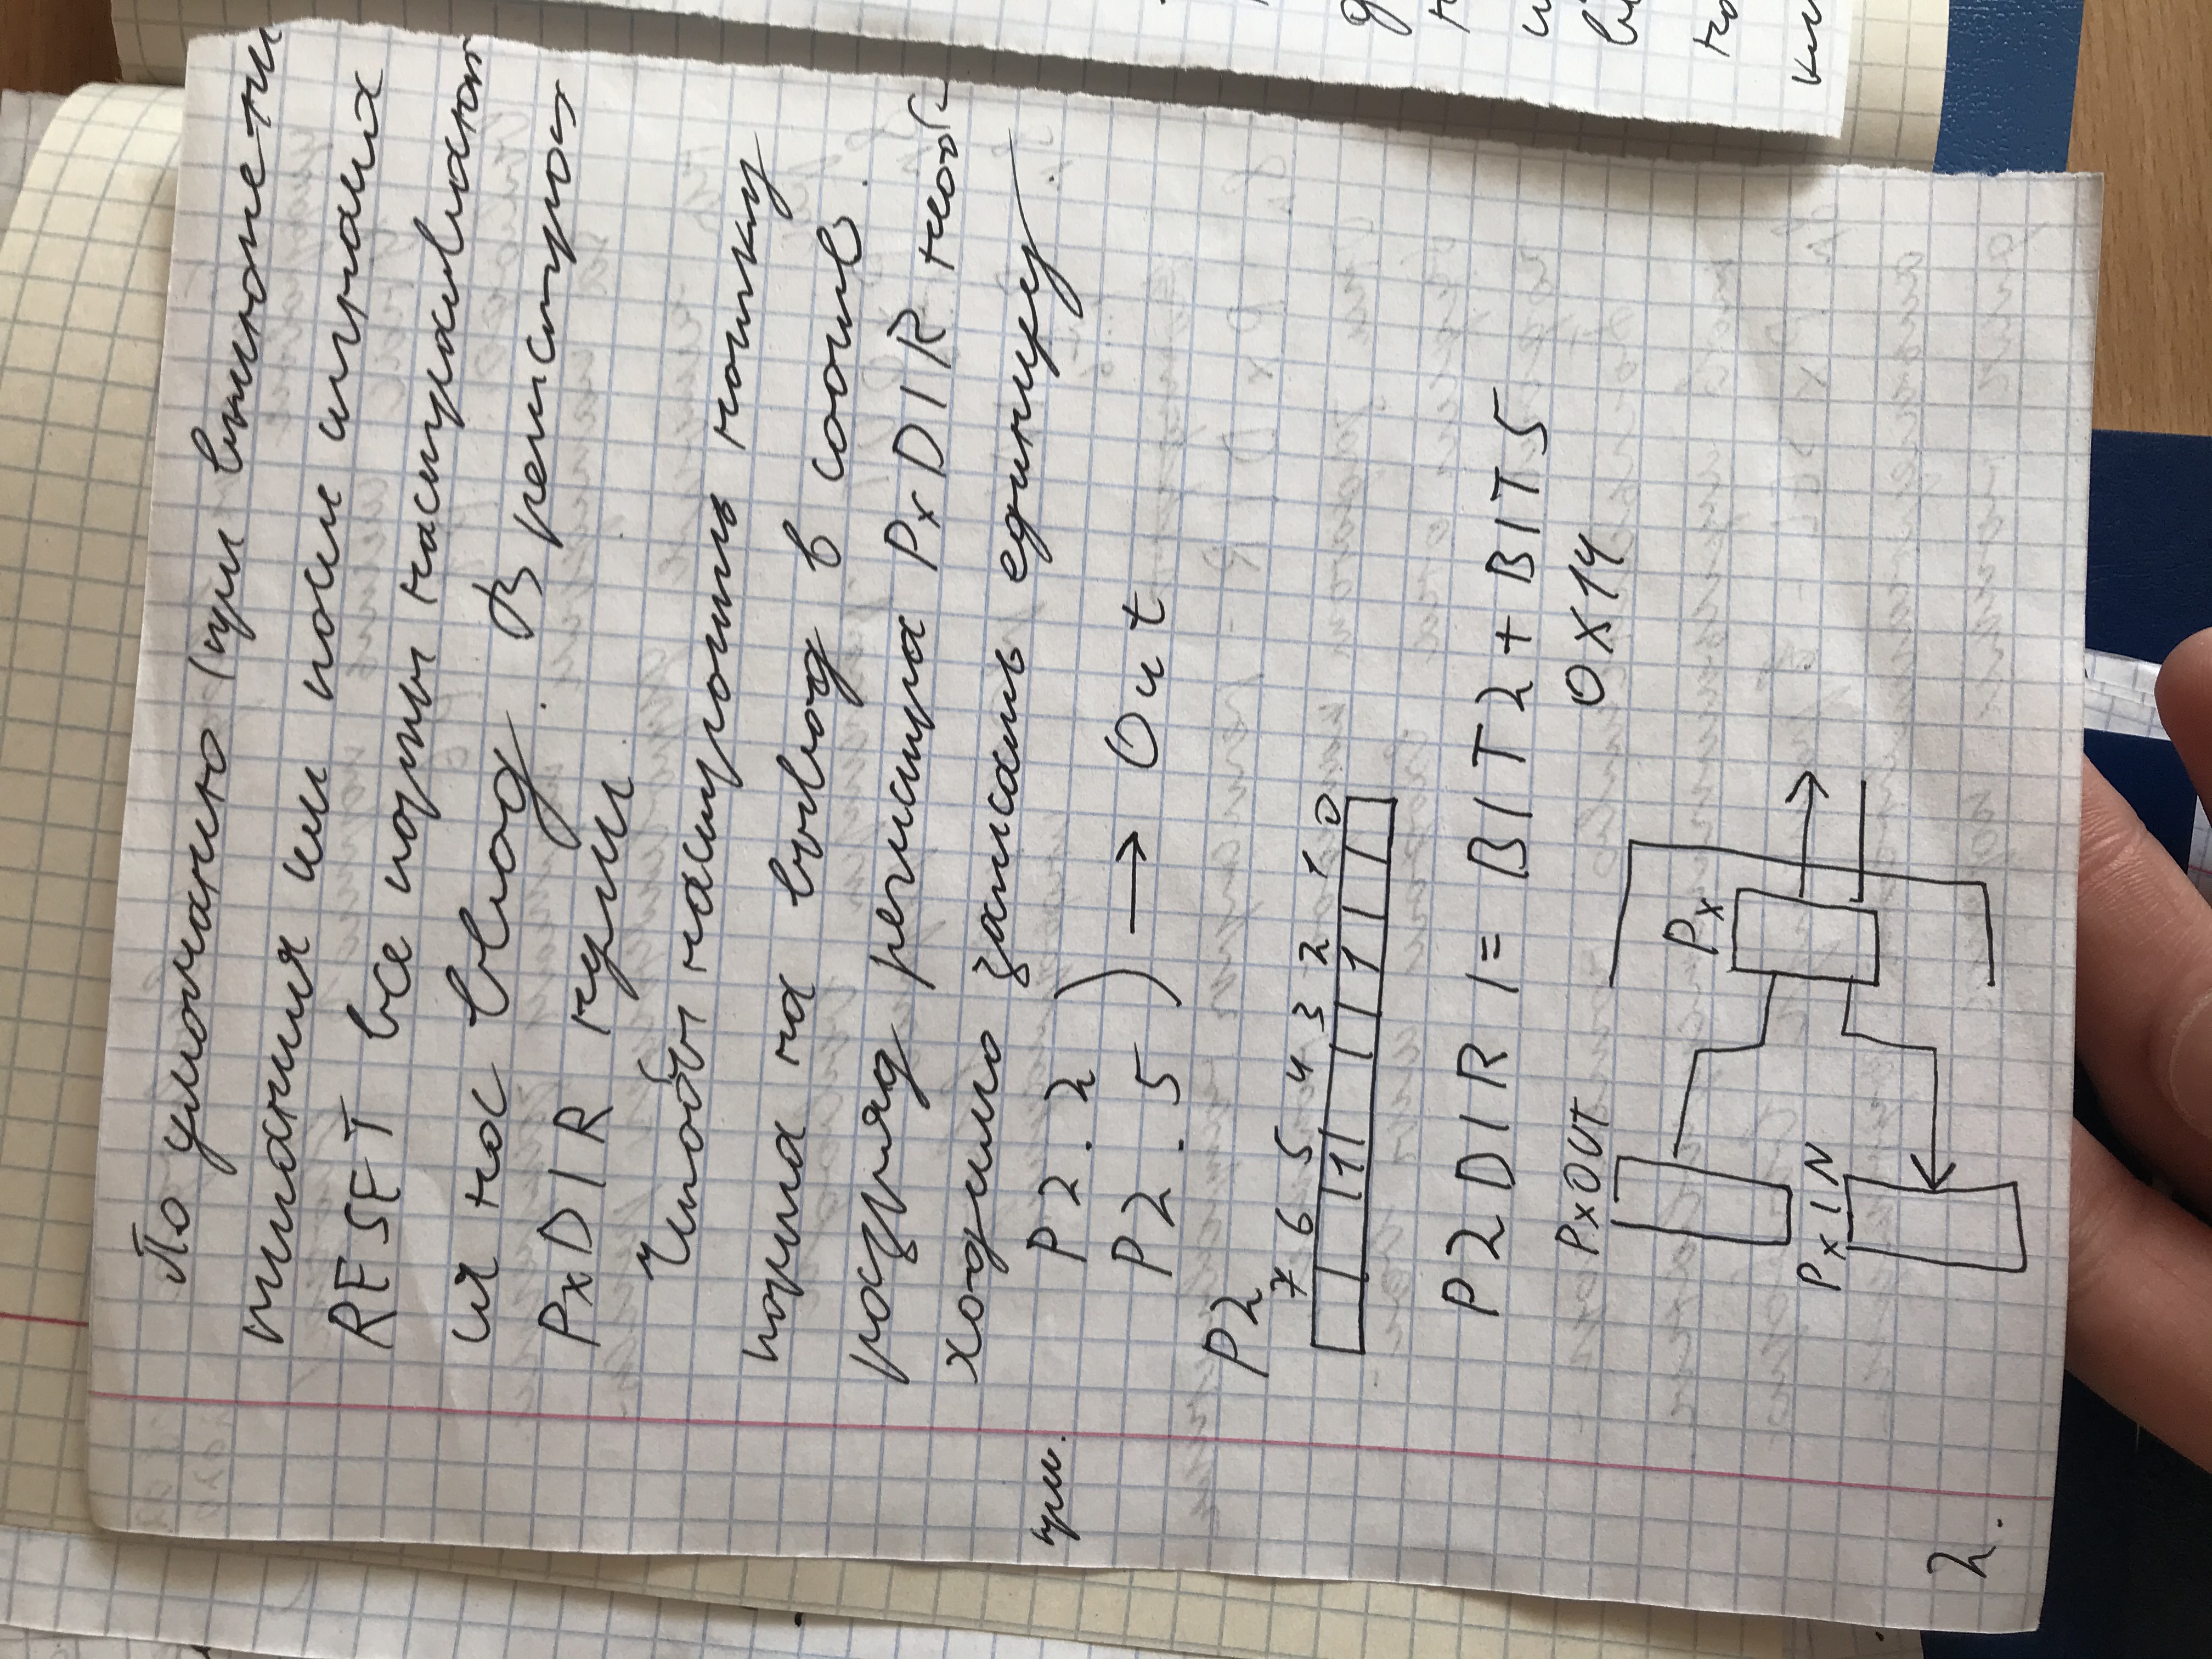 По умолчанию (при включении
питания или после сигнала
RESET все порты настраивают
ся на ввод. В регистрах
PxDIR нули.
Чтобы настроить ножку
порта на вывод в соотв.
разряд регистра PxDIR необ-
ходимо записать единицу.
при. P2.2
P2.5 ) → Out
P2
7 6 5 4 3 2 1 0
1 1
P2DIR |= BIT2 + BIT5
0x14
PxOUT
Px
PxIN
2.